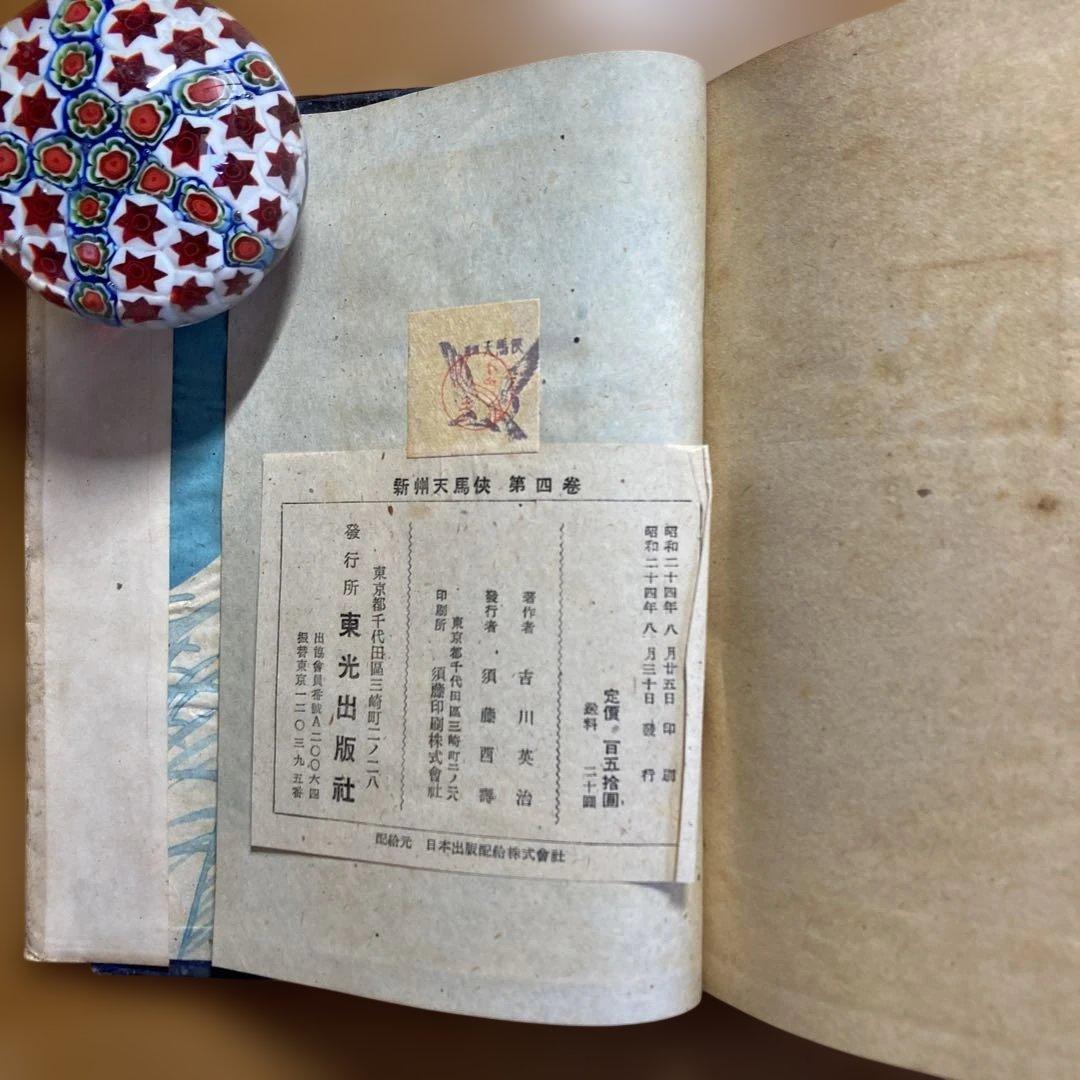 天馬俠
新州天馬俠 第四卷
昭和二十四年八月廿五日 印刷
昭和二十四年八月三十日 發行
定價 百五拾圓
送料 二十圓
著作者 吉川英治
發行者 須藤酉壽
東京都千代田區三崎町二ノ元
印刷所 須藤印刷株式會社
東京都千代田區三崎町二ノ二八
發行所 東光出版社
出協會員番號A二〇〇六四
振替東京一二〇三九五番
配給元 日本出版配給株式會社